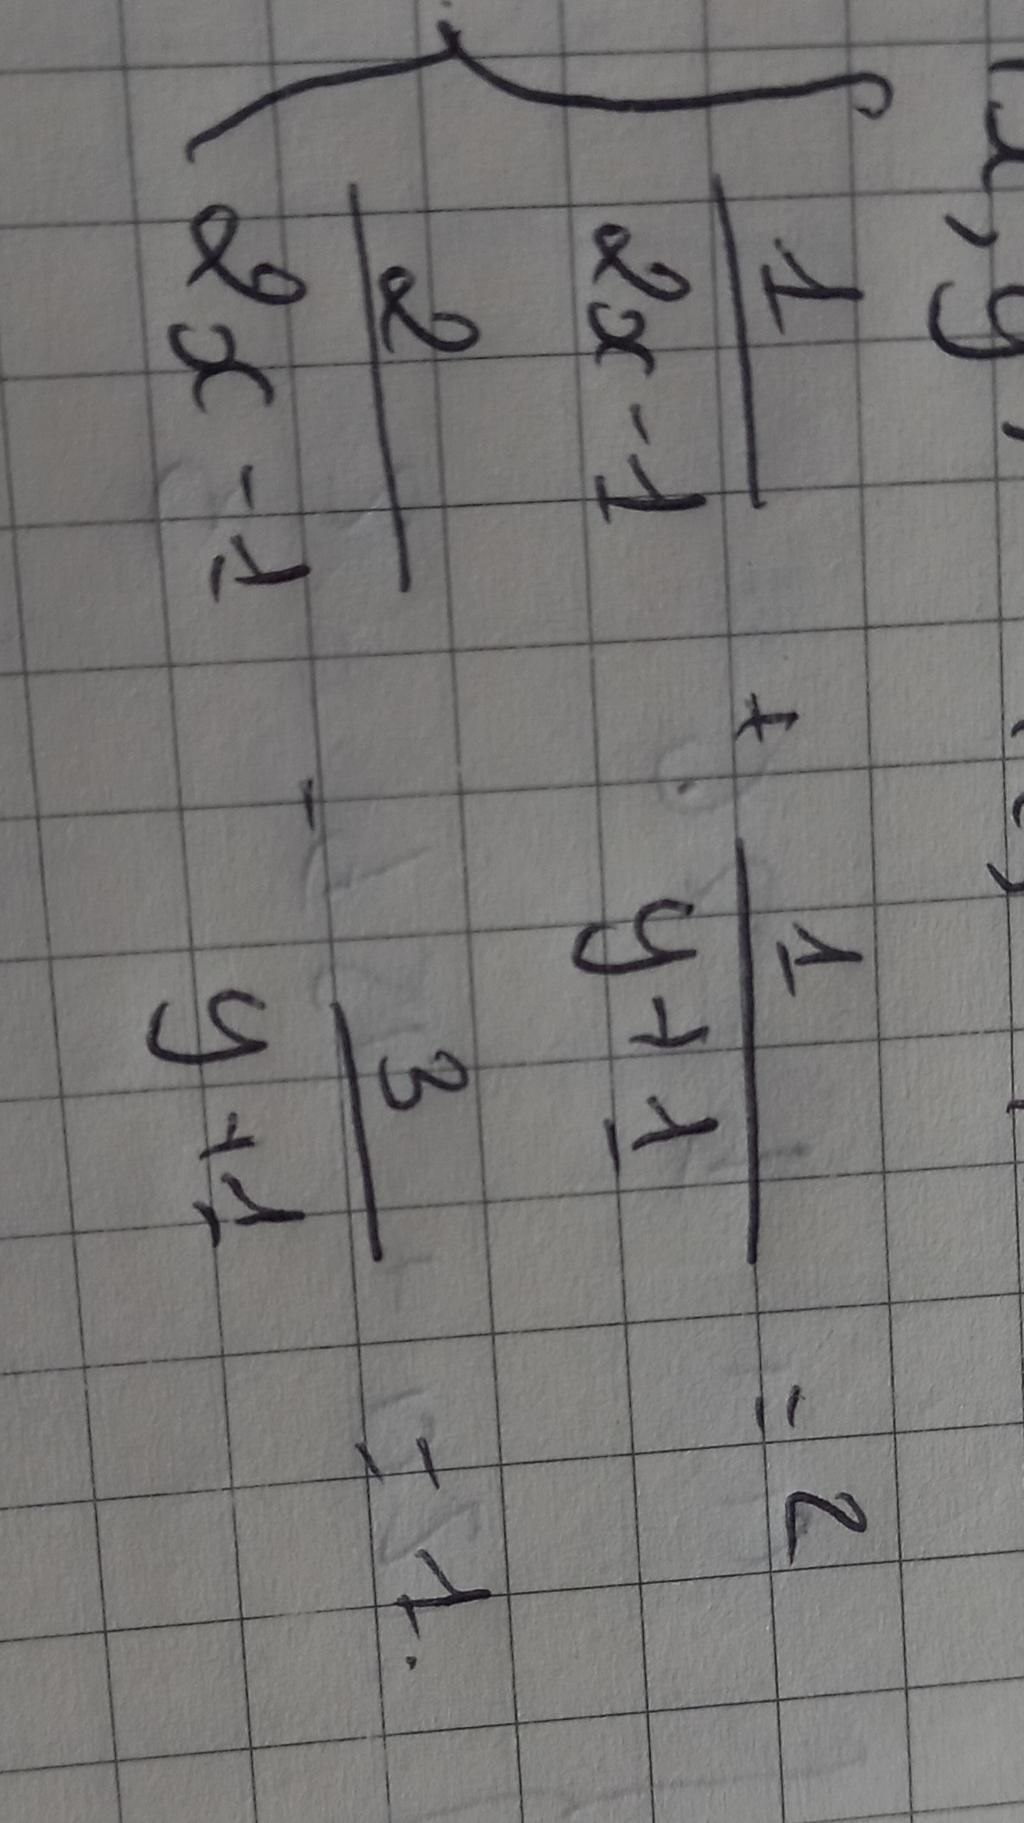 x, y,
{ 1/(2x-1) + 1/(y+1) = 2
2/(2x-1) - 3/(y+1) = 1.